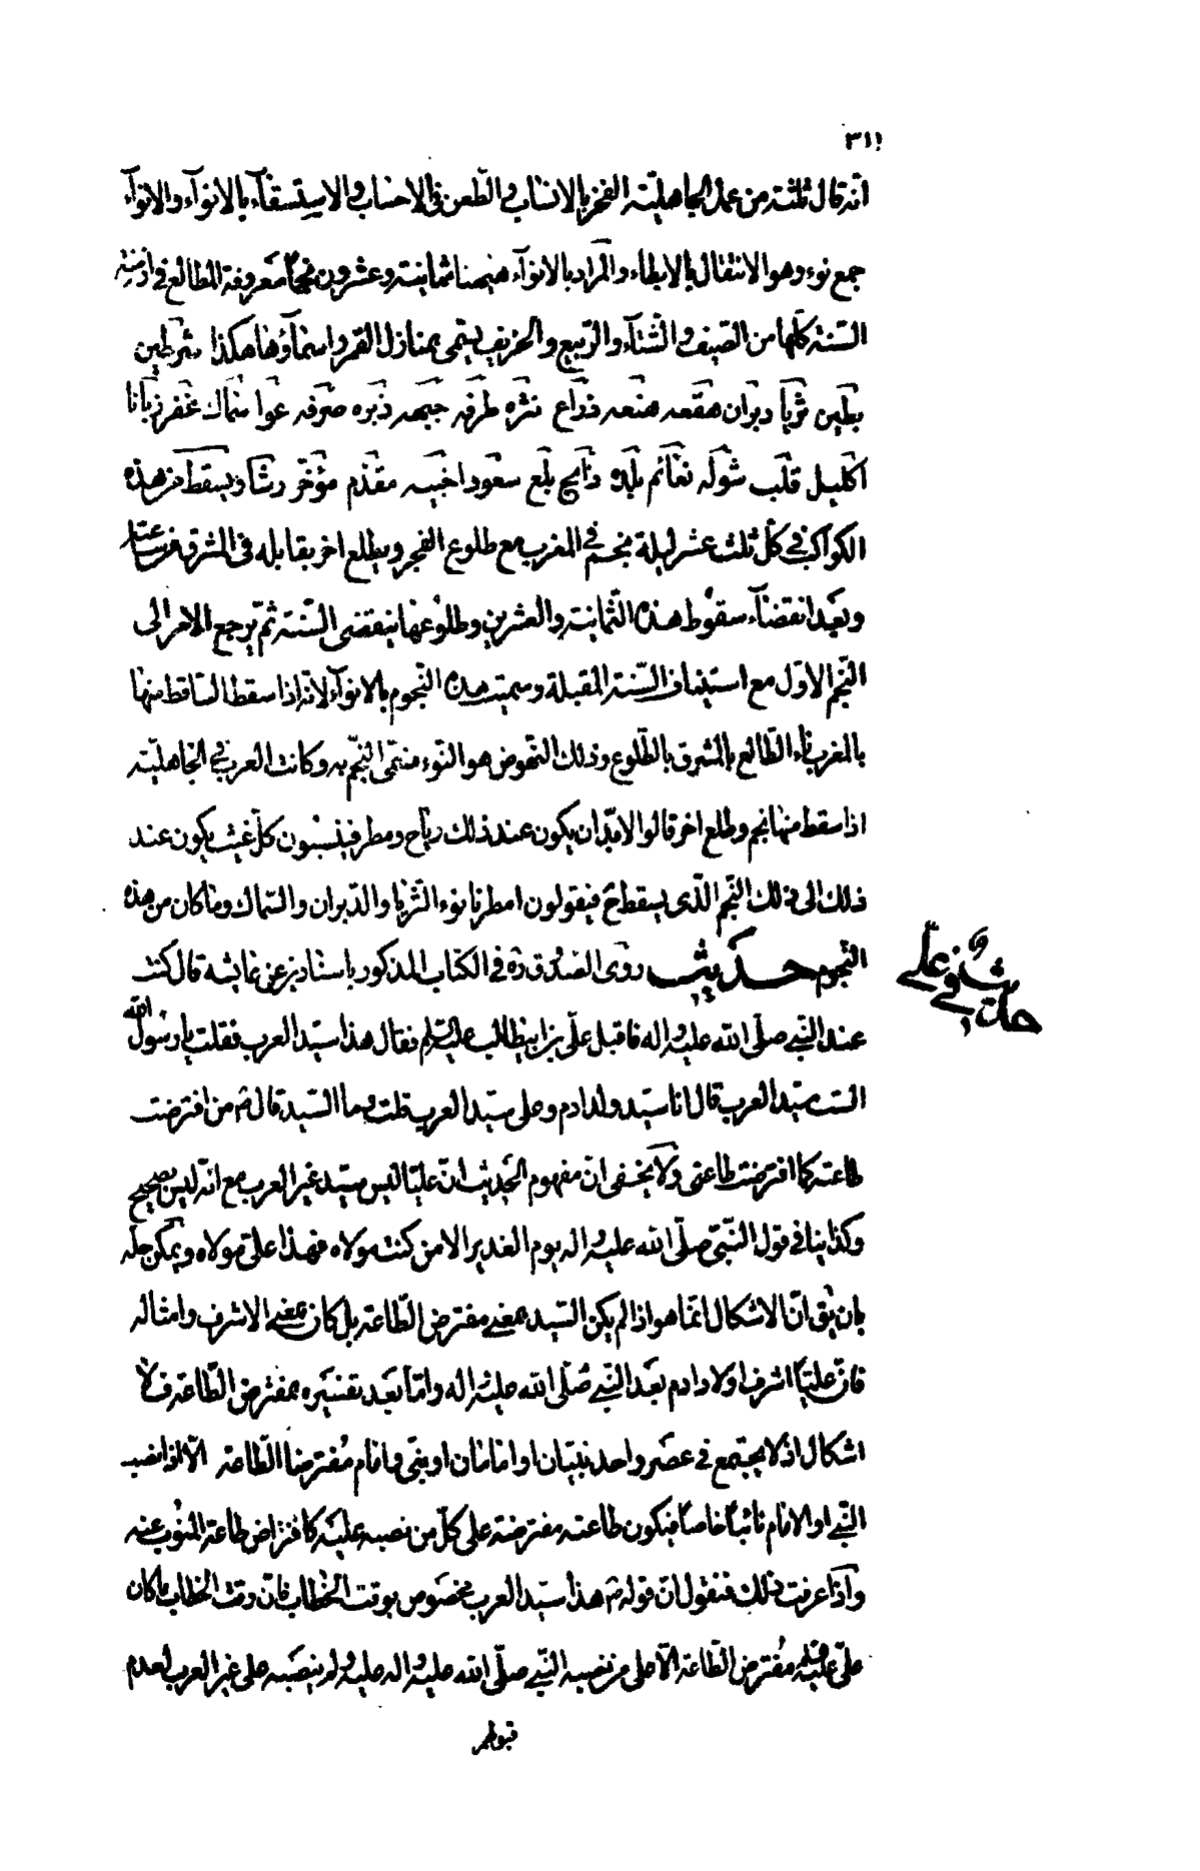 ٣١١
انّه قال ثلثة من عمل الجاهليّة الفخر بالانساب والطّعن فى الاحساب والاستسقآء بالانوآء والانوآء
جمع نوء وهو الانتقال بالابطاء والمراد بالانوآء هيهنا ثمانية وعشرون نجمًا معروفة المطالع فى ازمنة
السّنة كلّها من الصّيف والشّتآء والرّبيع والخريف يسمّى بمنازل القمر واسمآؤها هكذا شرطين
بطين ثريّا دبران هقعه هنعه ذراع نثره طرفه جبهه ذبره صرفه عوا سماك غفر زبانا
اكليل قلب شوله نعائم بلده ذابح بلع سعود اخبيه مقدّم مؤخّر رشا ويسقط من هذه
الكواكب فى كلّ ثلث عشر ليلة نجم فى المغرب مع طلوع الفجر ويطلع اخر يقابله فى المشرق من ساعته
وبعد انقضآء سقوط هذه الثّمانية والعشرين وطلوعها ينقضى السّنة ثمّ يرجع الامر الى
النّجم الاوّل مع استيناف السّنة المقبلة وسميت هذه النّجوم بالانوآء لانّه اذا سقط الساقط منها
بالمغرب ناء الطّالع بالمشرق بالطّلوع وذلك النّهوض هو النّوء فسمّى النّجم به وكانت العرب فى الجاهليّة
اذا سقط منها نجم وطلع اخر قالوا لابدّ ان يكون عند ذلك رياح ومطر فينسبون كلّ غيث يكون عند
ذلك الى ذلك النّجم الّذى يسقط ح فيقولون امطرنا نوء الثّريا والدّبران والسّماك وما كان من هذه
النّجوم حديث روى الصّدوق ره فى الكتاب المذكور باسناده عن عايشه قال كنت
عند النّبى صلّى الله عليه واله فاقبل علىّ بن ابيطالب عليه السّلم فقال هذا سيّد العرب فقلت يا رسول الله
الست سيّد العرب قال انا سيّد ولد ادم وعلى سيّد العرب قلت وما السّيد قال ص من افترضت
طاعته كما افترضت طاعتى ولا يخفى انّ مفهوم الحديث انّ عليّا ليس سيّد غير العرب مع انّه ليس بصحيح
وكذا ينافى قول النّبىّ صلّى الله عليه واله يوم الغدير الا من كنت مولاه فهذا علىّ مولاه ويمكن حلّه
بان يق انّ الاشكال انّما هو اذا لم يكن السّيد بمعنى مفترض الطّاعة بل كان بمعنى الاشرف وامثاله
فانّ عليّا اشرف اولاد ادم بعد النّبى صلّى الله عليه اله وامّا بعد تفسيره بمفترض الطّاعة فلا
اشكال اذ لا يجتمع فى عصر واحد نبيّان او امامان او نبى وامام مفترضا الطّاعة الّا اذا نصب
النّبى او الامام نائبًا خاصًا فيكون طاعته مفترضة على كلّ من نصبه عليه كافتراض طاعة المنوب عنه
واذا عرفت ذلك فنقول انّ قوله ص هذا سيّد العرب مخصوص بوقت الخطاب فانّ وقت الخطاب ما كان
علىّ عليه السلم مفترض الطّاعة الّا على من نصبه النّبى صلّى الله عليه اله عليه ولم ينصبه على غير العرب لعدم
قبولهم